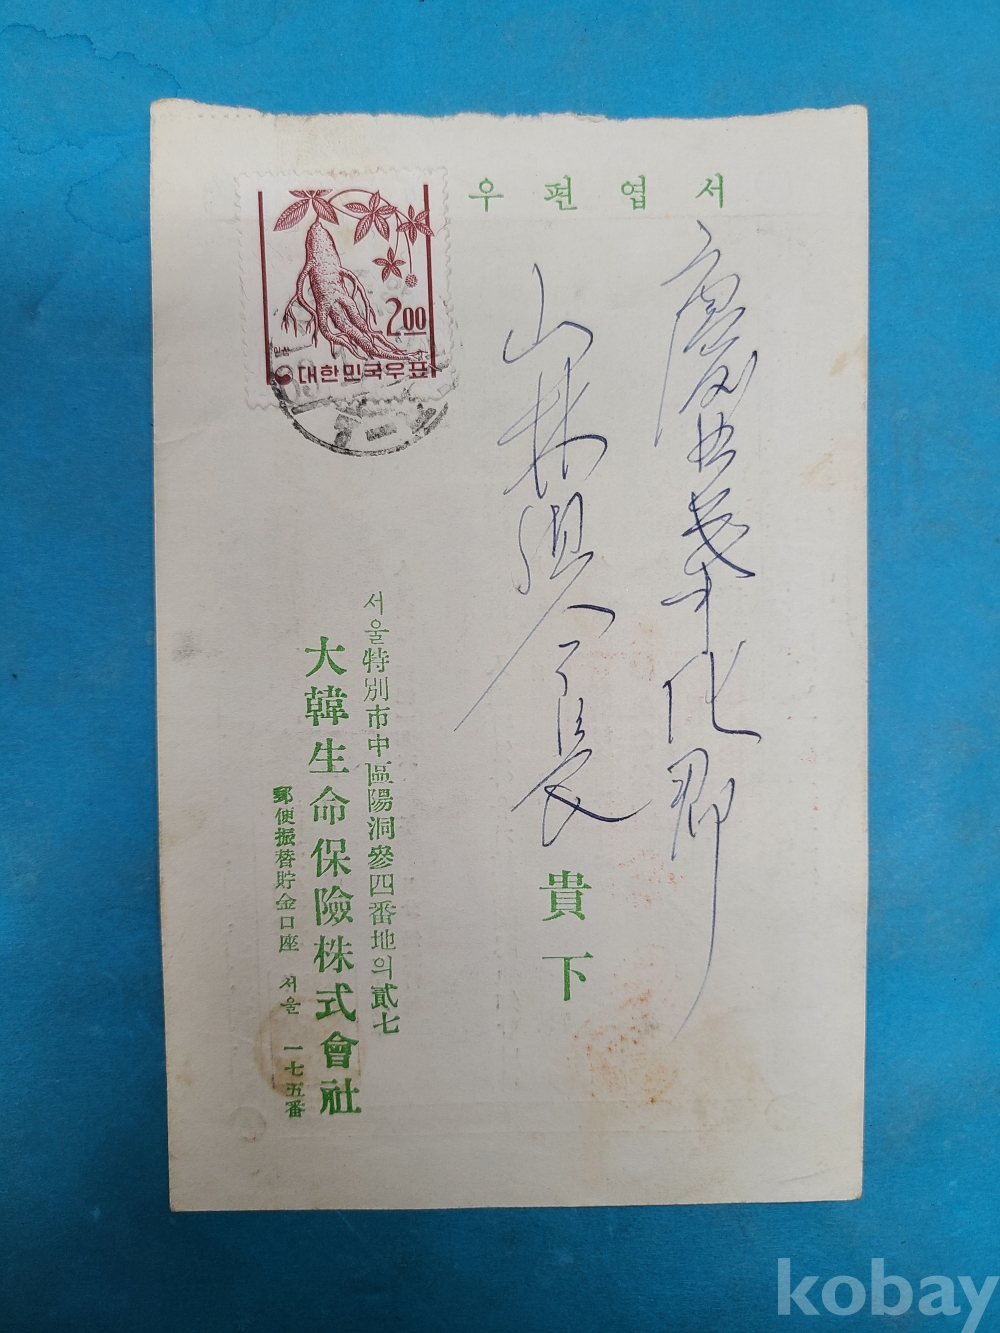 우편엽서
2.00
인삼
대한민국우표
慶北奉化郡
山林組合長
貴下
서울特別市中區陽洞參四番地의貳七
大韓生命保險株式會社
郵便振替貯金口座 서울 一七五番
kobay